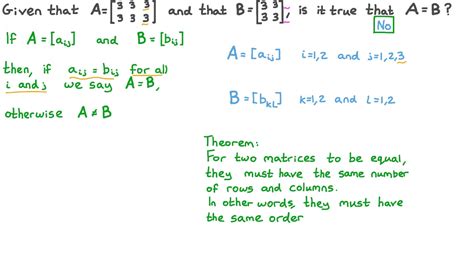 Given that A=[3 3 3 and that B=[3 3 , is it true that A=B?
3 3 3] 3 3]
No
If A=[aij] and B=[bij]
then, if aij = bij for all
i and j we say A=B,
otherwise A≠B
A=[aij] i=1,2 and j=1,2,3
B=[bkl] k=1,2 and l=1,2
Theorem:
For two matrices to be equal,
they must have the same number
of rows and columns.
In other words, they must have
the same order